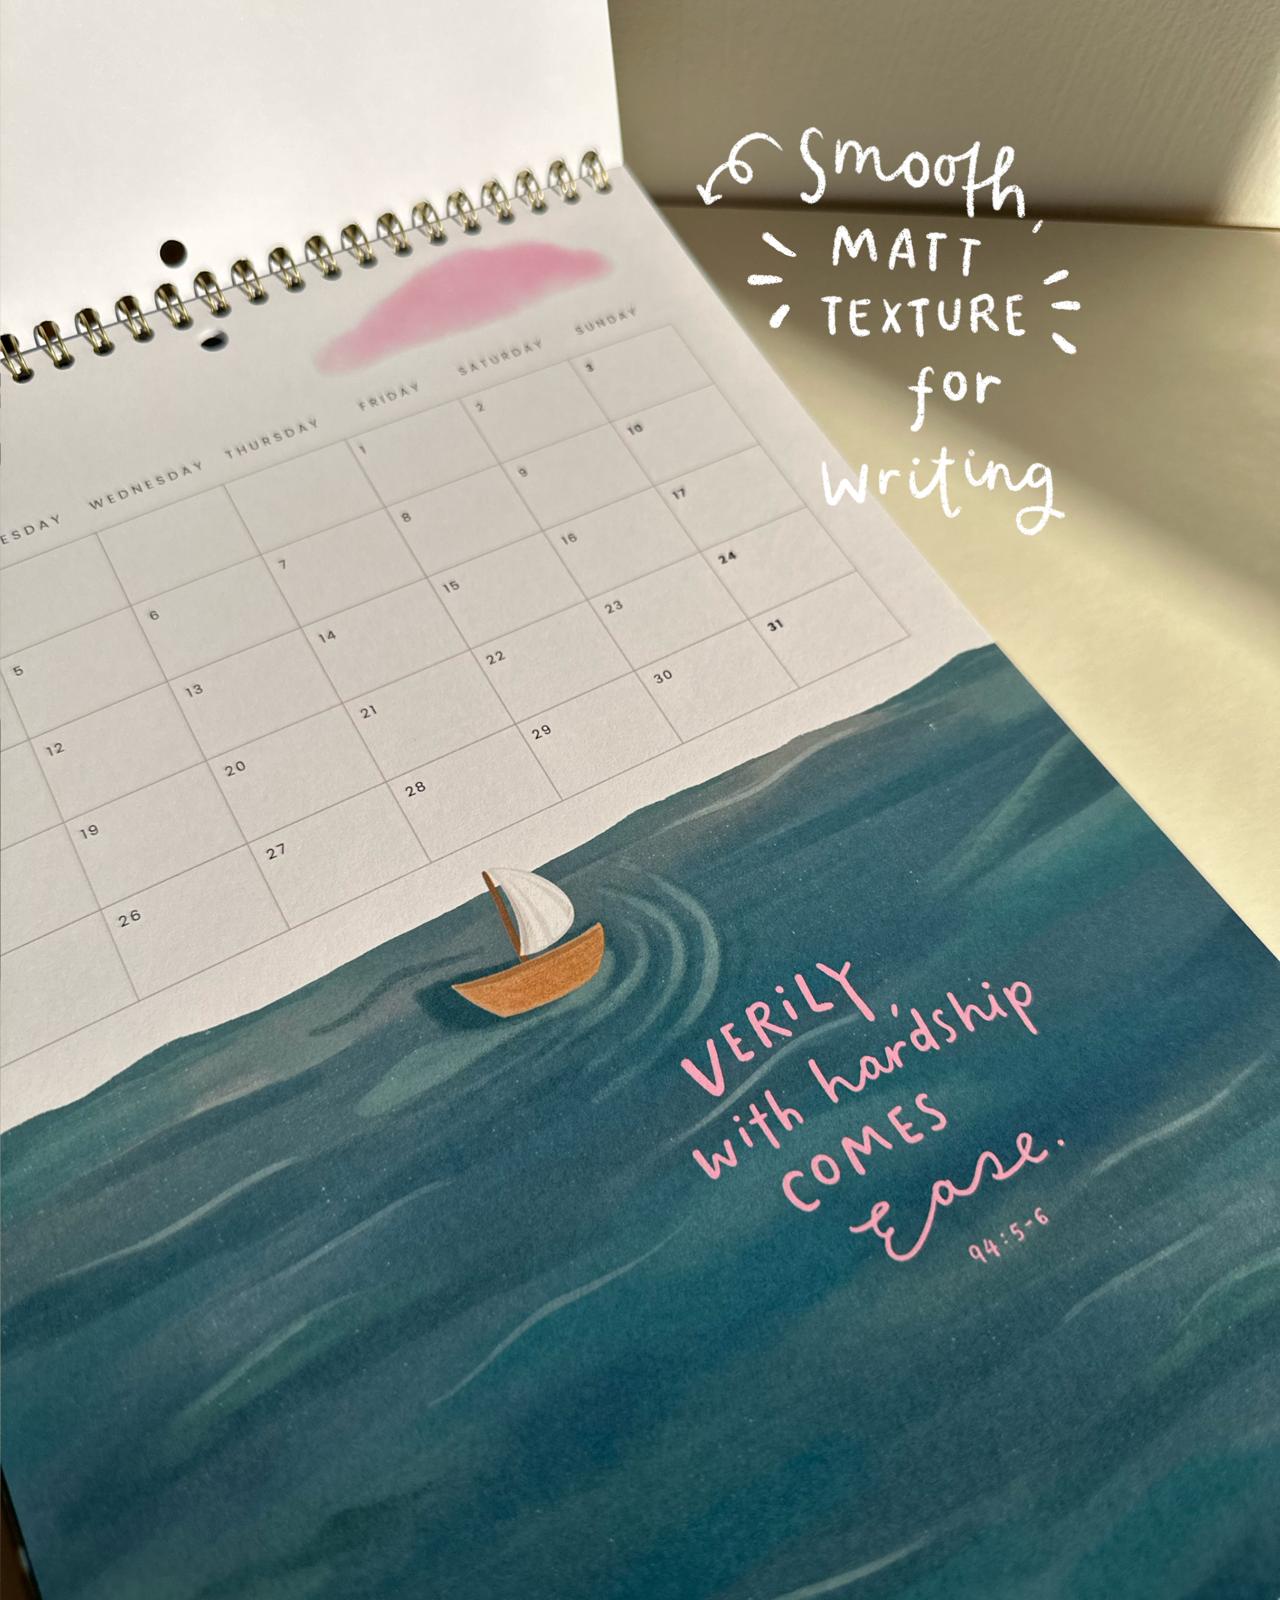 Smooth,
MATT
TEXTURE
for
Writing
ESDAY WEDNESDAY THURSDAY FRIDAY SATURDAY SUNDAY
1 2 3
5 6 7 8 9 10
12 13 14 15 16 17
19 20 21 22 23 24
26 27 28 29 30 31
VERiLY,
with hardship
COMES
Ease.
94:5-6